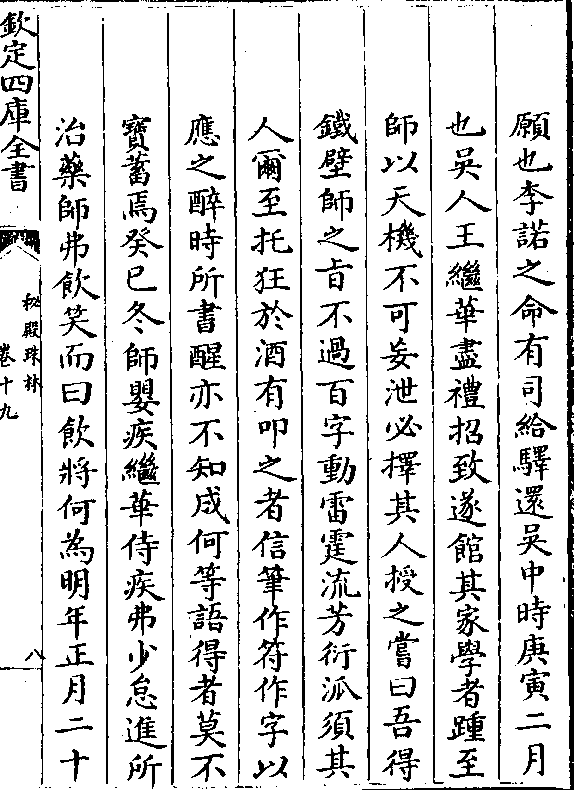 願也李諾之命有司給驛還吳中時庚寅二月
也吳人王繼華盡禮招致遂館其家學者踵至
師以天機不可妄泄必擇其人授之嘗曰吾得
鐵壁師之旨不過百字動雷霆流芳衍派須其
人爾至托狂於酒有叩之者信筆作符作字以
應之醉時所書醒亦不知成何等語得者莫不
寶蓄焉癸巳冬師嬰疾繼華侍疾弗少怠進所
治藥師弗飲笑而曰飲將何為明年正月二十
欽定四庫全書
秘殿珠林
卷十九
八